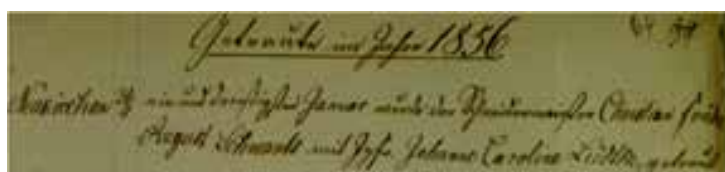 Getraute im Jahre 1856
Neukirchen ein und dreißigsten Januar wurde der Schneidermeister Christian Friedr
August Schwarck mit Jgfr. Johanne Caroline Lüdtke getraut